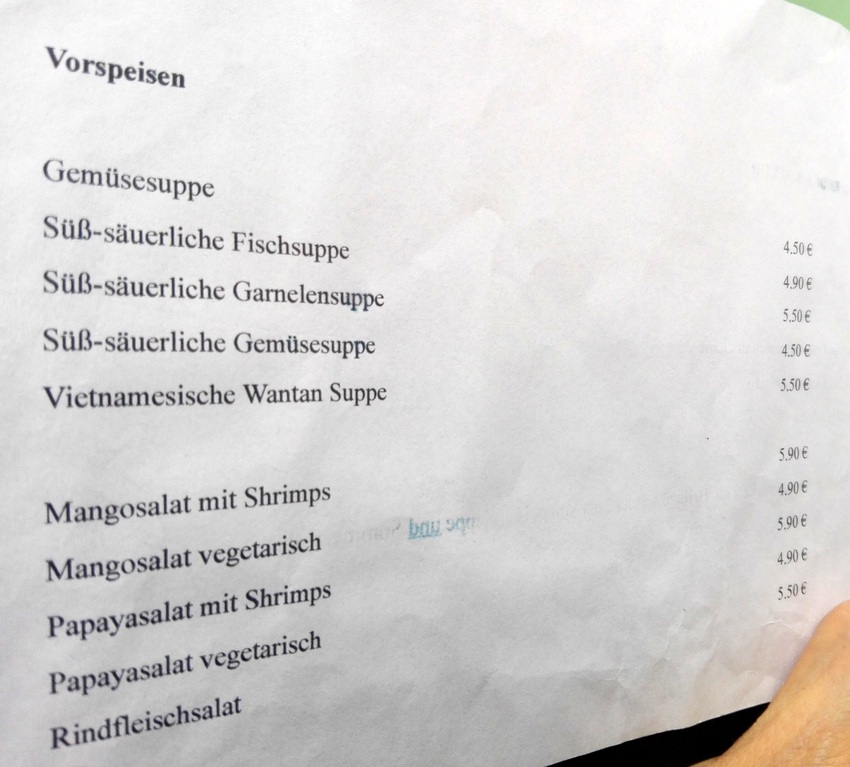 Vorspeisen
Gemüsesuppe 4.50 €
Süß-säuerliche Fischsuppe 4.90 €
Süß-säuerliche Garnelensuppe 5.50 €
Süß-säuerliche Gemüsesuppe 4.50 €
Vietnamesische Wantan Suppe 5.50 €
Mangosalat mit Shrimps 5.90 €
Mangosalat vegetarisch 4.90 €
Papayasalat mit Shrimps 5.90 €
Papayasalat vegetarisch 4.90 €
Rindfleischsalat 5.50 €